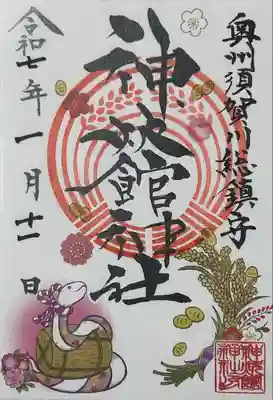 奥州須賀川総鎮守
神炊館神社
令和七年一月十一日